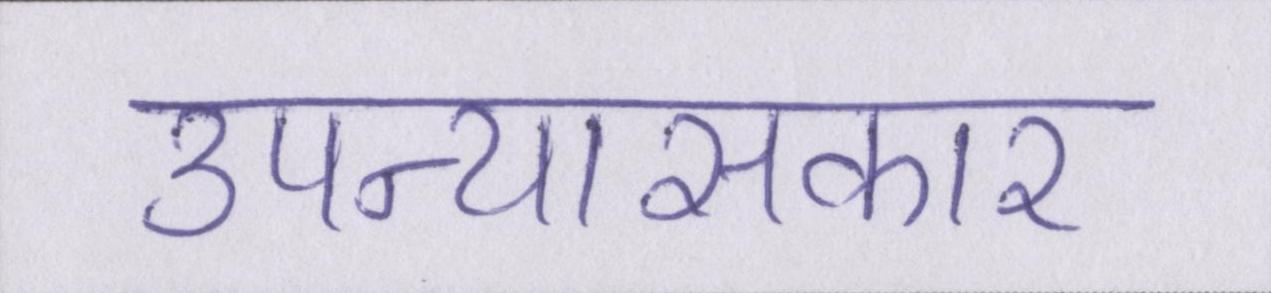 उपन्यासकार